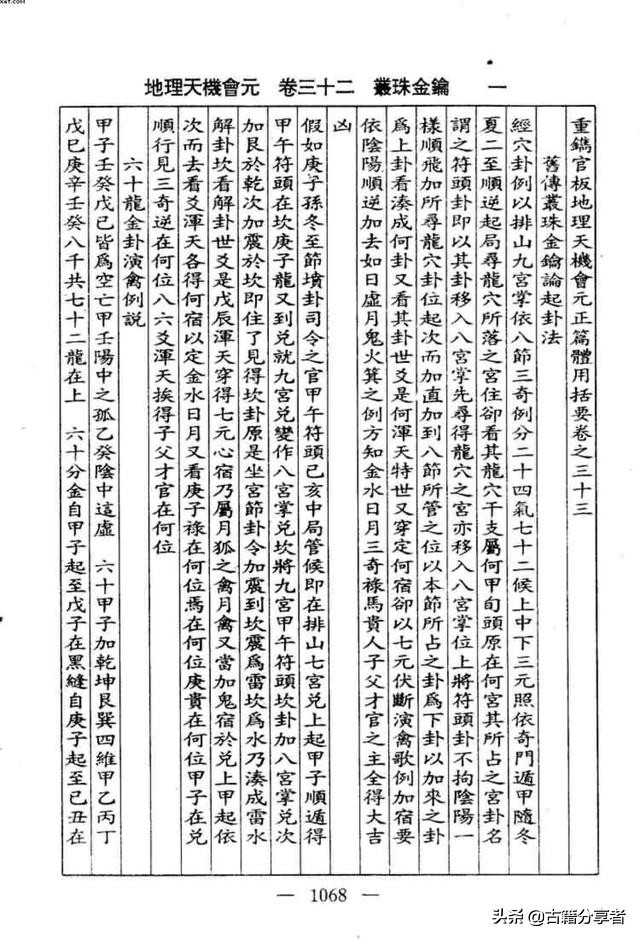 xet.com
地理天機會元　卷三十二　叢珠金鑰　一
重鐫官板地理天機會元正篇體用括要卷之三十三
舊傳叢珠金鑰論起卦法
經穴卦例以排山九宮掌依八節三奇例分二十四氣七十二候上中下三元照依奇門遁甲隨冬
夏二至順逆起局尋龍穴所落之宮住卻看其龍穴干支屬何甲旬頭原在何宮其所占之宮卦名
謂之符頭卦即以其卦移入八宮掌先尋得龍穴之宮亦移入八宮掌位上將符頭卦不拘陰陽一
樣順飛加所尋龍穴卦位起次而加直加到八節所管之位以本節所占之卦為下卦以加來之卦
為上卦看湊成何卦又看其卦世爻是何渾天特世又穿定何宿卻以七元伏斷演禽歌例加宿要
依陰陽順逆加去如日虛月鬼火箕之例方知金水日月三奇祿馬貴人子父才官之主全得大吉
凶
假如庚子孫冬至節墳卦司令之官甲午符頭已亥中局管候即在排山七宮兌上起甲子順遁得
甲午符頭在坎庚子龍又到兌就九宮兌變作八宮掌兌坎將九宮甲午符頭坎卦加八宮掌兌次
加艮於乾次加震於坎即住了見得坎卦原是坐宮節卦令加震到坎震為雷坎為水乃湊成雷水
解卦坎看解卦世爻是戊辰渾天穿得七元心宿乃屬月狐之禽月禽又當加鬼宿於兌上甲起依
次而去看爻渾天各得何宿以定金水日月又看庚子祿在何位焉在何位庚貴在何位甲子在兌
順行見三奇逆在何位八六爻渾天挨得子父才官在何位
六十龍金卦演禽例說
甲子壬癸戊已皆為空亡甲壬陽中之孤乙癸陰中這虛　六十甲子加乾坤艮巽四維甲乙丙丁
戊巳庚辛壬癸八千共七十二龍在上　六十分金自甲子起至戊子在黑縫自庚子起至已丑在
— 1068 —
头条 @古籍分享者